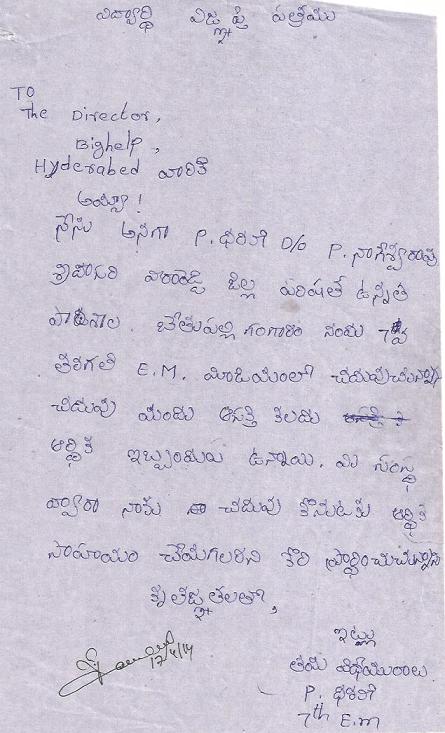 విద్యార్థి విజ్ఞప్తి పత్రము
TO
The Director,
Bighelp,
Hyderabad వారికి
అయ్యా!
నేను అనగా P. ధరణి D/o P. నాగేశ్వరరావు
జిల్ల పరిషత్ ఉన్నత
పాఠశాల. బేతుపల్లి గంగారం నందు 7వ
తరగతి E.M. మీడియంలో చదువుచున్నాను
చదువు యందు ఆసక్తి కలదు
ఆర్థిక ఇబ్బందులు ఉన్నాయి. మీ సంస్థ
ద్వారా నాకు ఈ చదువు కొనుటకు ఆర్థిక
సాహాయం చేయగలరని కోరి ప్రార్థించుచున్నాను
కృతజ్ఞతలతో,
ఇట్లు
తమ విధేయురాలు
P. ధరణి
7th E.m
17/4/14